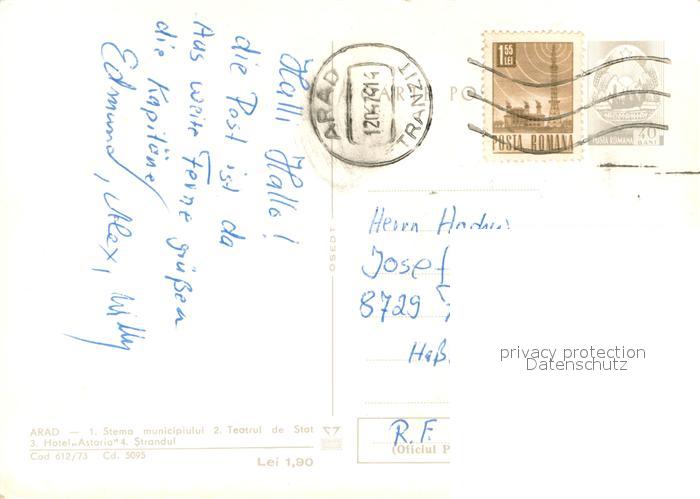 Halli Hallo!
die Post ist da
Aus weite Ferne grüßen
die Kapitäne
Edmund, Alex, Willy
ARAD TRANZIT
12.04.74.14
1,55 LEI
POSTA ROMANA
POSTA ROMANA 40 BANI
Herrn
Josef
8729
Haß
privacy protection
Datenschutz
R. F.
(Oficiul P
OSEDT
ARAD — 1. Stema municipiului 2. Teatrul de Stat
3. Hotel „Astoria" 4. Ștrandul
Cod 612/73 Cd. 5095
Lei 1,90